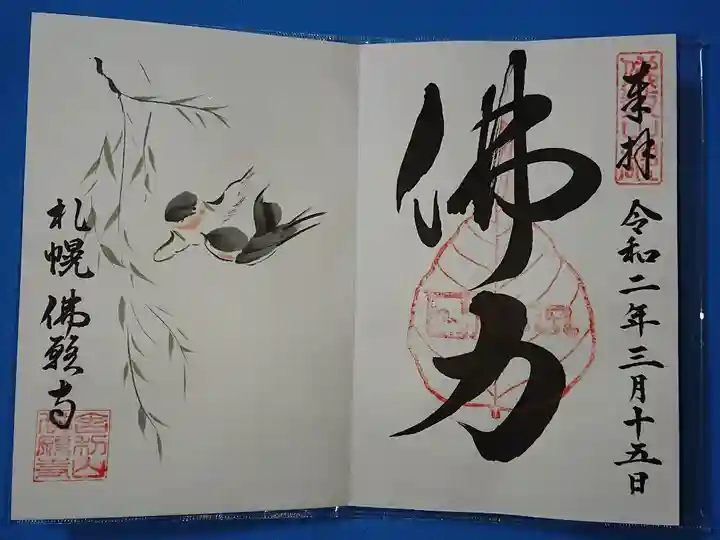 来拝
令和二年三月十五日
佛力
札幌佛願寺